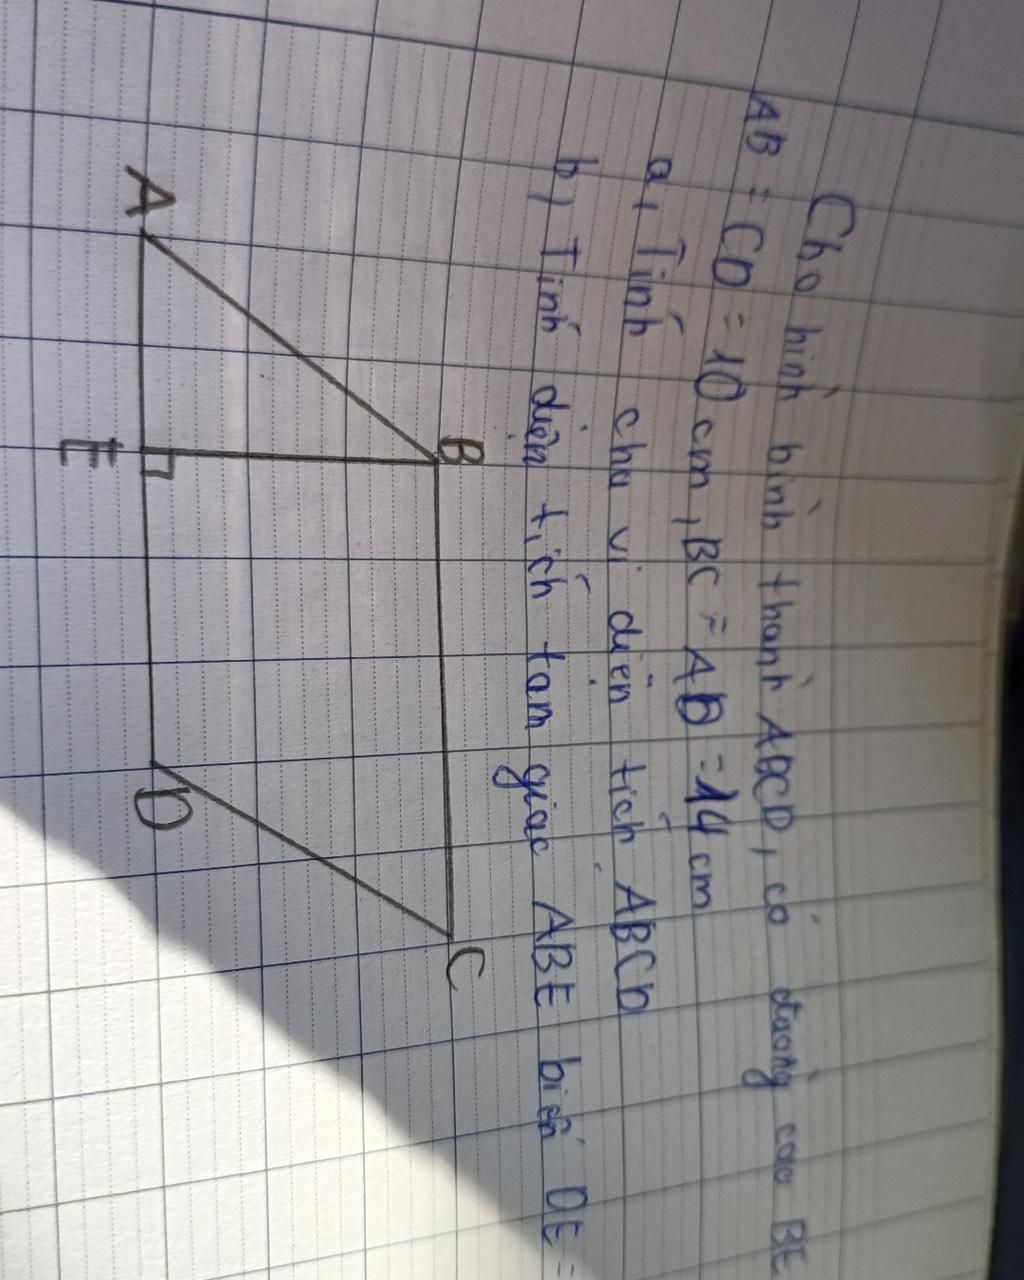 Cho hình bình thành ABCD, có đường cao BE
AB = CD = 10 cm, BC = AD = 14 cm
a, Tính chu vi diện tích ABCD
b, Tính diện tích tam giác ABE biết DE =
B
C
A
E
D